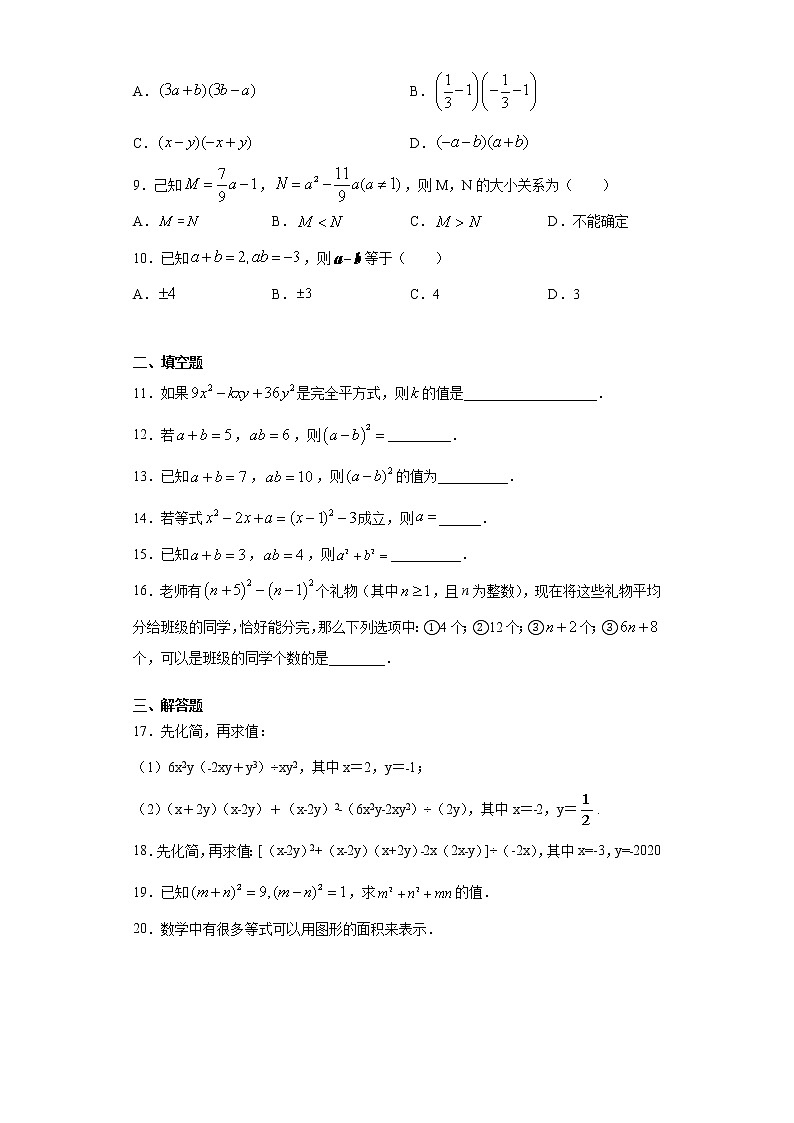 A．(3a+b)(3b−a) B．(1/3−1)(−1/3−1)
C．(x−y)(−x+y) D．(−a−b)(a+b)
9．己知M=7/9a−1，N=a²−11/9a(a≠1)，则 M，N 的大小关系为（ ）
A．M=N B．M<N C．M>N D．不能确定
10．已知a+b=2,ab=−3，则a−b等于（ ）
A．±4 B．±3 C．4 D．3
二、填空题
11．如果9x²−kxy+36y²是完全平方式，则k的值是___________________．
12．若a+b=5，ab=6，则(a−b)²=_________．
13．已知a+b=7，ab=10，则(a−b)²的值为__________．
14．若等式x²−2x+a=(x−1)²−3成立，则a=______．
15．已知a+b=3，ab=4，则a²+b²=__________．
16．老师有(n+5)²−(n−1)²个礼物（其中n≥1，且n为整数），现在将这些礼物平均
分给班级的同学，恰好能分完，那么下列选项中：①4 个；②12 个；③n+2个；③6n+8
个，可以是班级的同学个数的是________．
三、解答题
17．先化简，再求值：
（1）6x²y（-2xy＋y³）÷xy²，其中 x＝2，y＝-1；
（2）（x＋2y）（x-2y）＋（x-2y）²-（6x²y-2xy²）÷（2y），其中 x＝-2，y＝1/2．
18．先化简，再求值：[（x-2y）²+（x-2y）（x+2y）-2x（2x-y）]÷（-2x），其中 x=-3，y=-2020
19．已知(m+n)²=9,(m−n)²=1，求m²+n²+mn的值．
20．数学中有很多等式可以用图形的面积来表示．